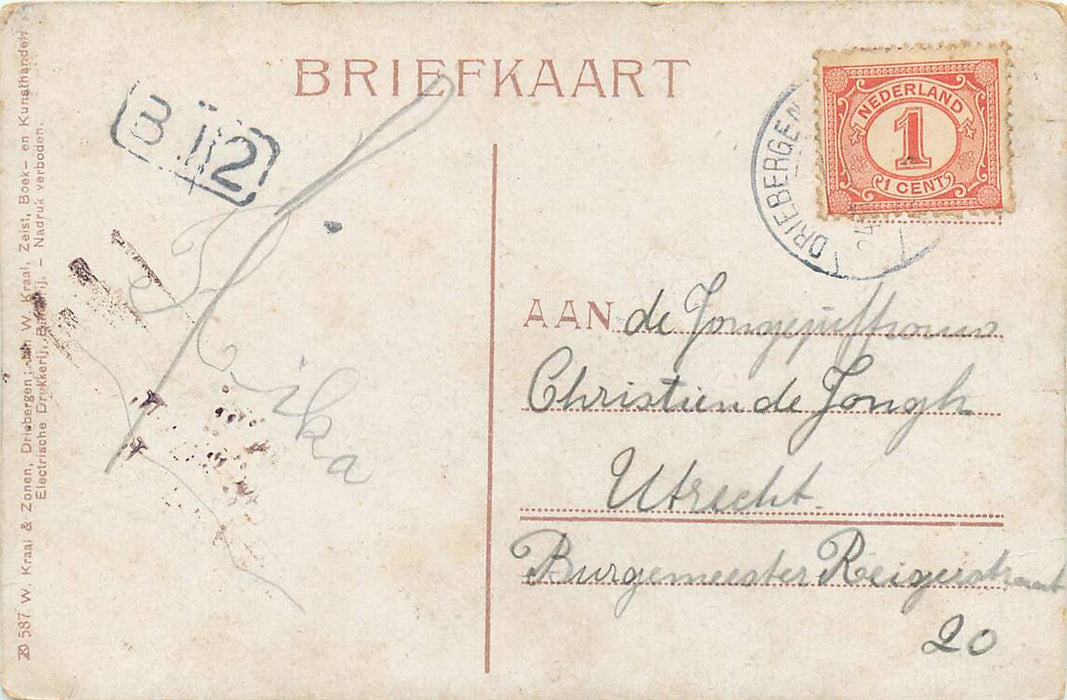 BRIEFKAART
B 112
DRIEBERGEN
24
NEDERLAND
1
1 CENT
Rika
AAN de Jongejuffrouw
Christien de Jongh
Utrecht.
Burgemeester Reigerstraat
20
29 587 W. Kraal & Zonen, Driebergen; Jan W. Kraal, Zeist, Boek- en Kunsthandel
Electrische Drukkerij, Binderij. – Nadruk verboden.